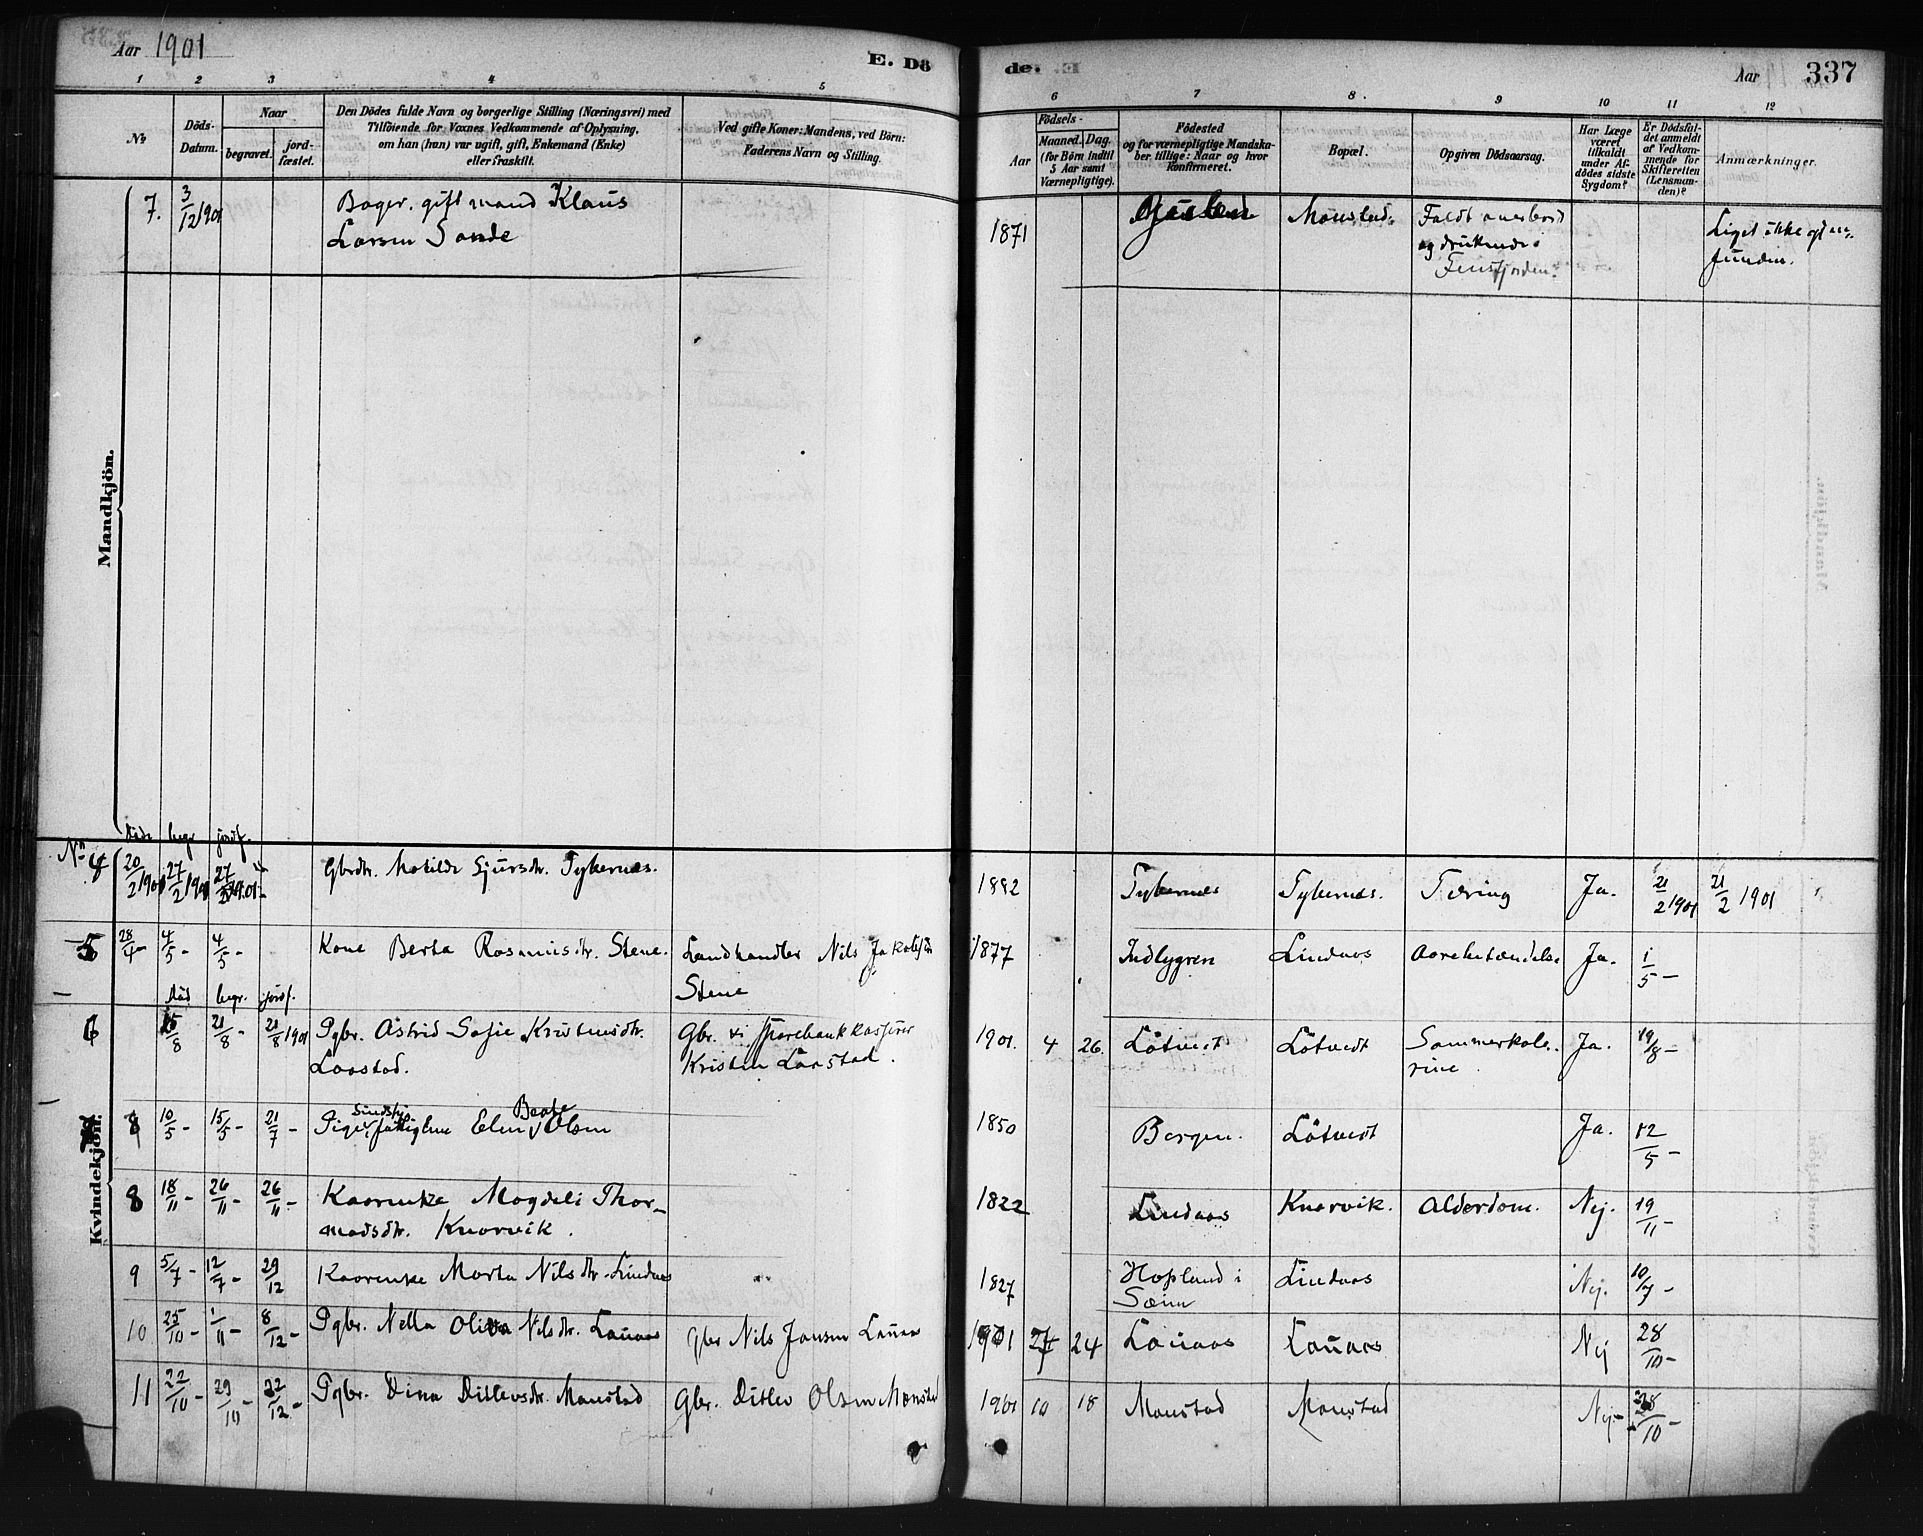 Aar 1901
E. Dö
de. E
Aar
337
1 2 3 4 5 6 7 8. 9 10 11 12
No
Döds-Datum.
Naar
begravet.
jord-fæstet.
Den Dödes fulde Navn og borgerlige Stilling (Næringsvei) med
Tilföiende for Voxnes Vedkommende af Oplysning,
om han (hun) var ugift, gift, Enkemand (Enke)
eller fraskilt.
Ved gifte Koner: Mandens, ved Börn:
Faderens Navn og Stilling.
Aar
Födsels-
Maaned. Dag.
(for Börn indtil
5 Aar samt
Værnepligtige).
Födested
og for værnepligtige Mandska-
ber tillige: Naar og hvor
konfirmeret.
Bopæl.
Opgiven Dödsaarsag.
Har Læge
været
tilkaldt
under Af-
dödes sidste
Sygdom?
Er Dödsfal-
det anmeldt
af Vedkom-
mende for
Skifteretten
(Lensman-
den)?
Anmærkninger.
Mandkjön.
7. 3/12 1901 Bager. gift mand Klaus
Larsen Sande
1871 Mønstad. Faldt overbord
og druknede i
Fensfjorden.
Liget ikke gjen-
funden.
døde begr. jordf.
Kvindekjön.
No 4 20/2 1901 27/2 1901 27/2 1901 Gbrdtr. Matilde Sjursdtr. Tykernæs. 1882 Tykernæs Tykernæs. Tæring Ja. 21/2 1901 21/2 1901
5 28/4 - 4/5 - 4/5 - Kone Berta Rasmusdtr. Stene. Landhandler Nils Jakobsen
Stene
1877 Indlygren Lindaas Aarebetændelse Ja. 1/5 -
død begr. jordf.
6 15/8 21/8 - 21/8 1901 Pgbr. Astrid Sofie Kristensdtr.
Laastad.
Gbr. & Sparebankkasserer
Kristen Laastad.
1901. 4 26. Løtvedt Løtvedt Sommerkole-
rine. Ja. 19/8 -
8 10/5 - 15/5 - 21/7 - Pige, Sindssyg fattiglem Elen Beate Olsen 1850 Bergen. Løtvedt Ja. 12/5 -
8 18/11 - 26/11 - 26/11 - Kaarenke Magdeli Thor-
madsdtr. Knarvik.
1822 Lindaas Knarvik. Alderdom. Nej. 19/11 -
9 5/7 - 12/7 - 29/12 Kaarenke Marta Nilsdtr. Lindaas 1827 Hopland i
Sæim Lindaas Nej. 10/7 -
10 25/10 - 1/11 - 8/12 - Pgbr. Nella Oliva Nilsdtr. Lauaas Gbr Nils Jansen Lauaas 1901 7 24 Lauaas Lauaas Nej 28/10 -
11 22/10 - 29/10 - 22/12 - Pgbr. Dina Ditlevsdtr. Monstad Gbr. Ditlev Olsen Monstad 1901 10 18 Monstad Monstad Nej - 28/10 -